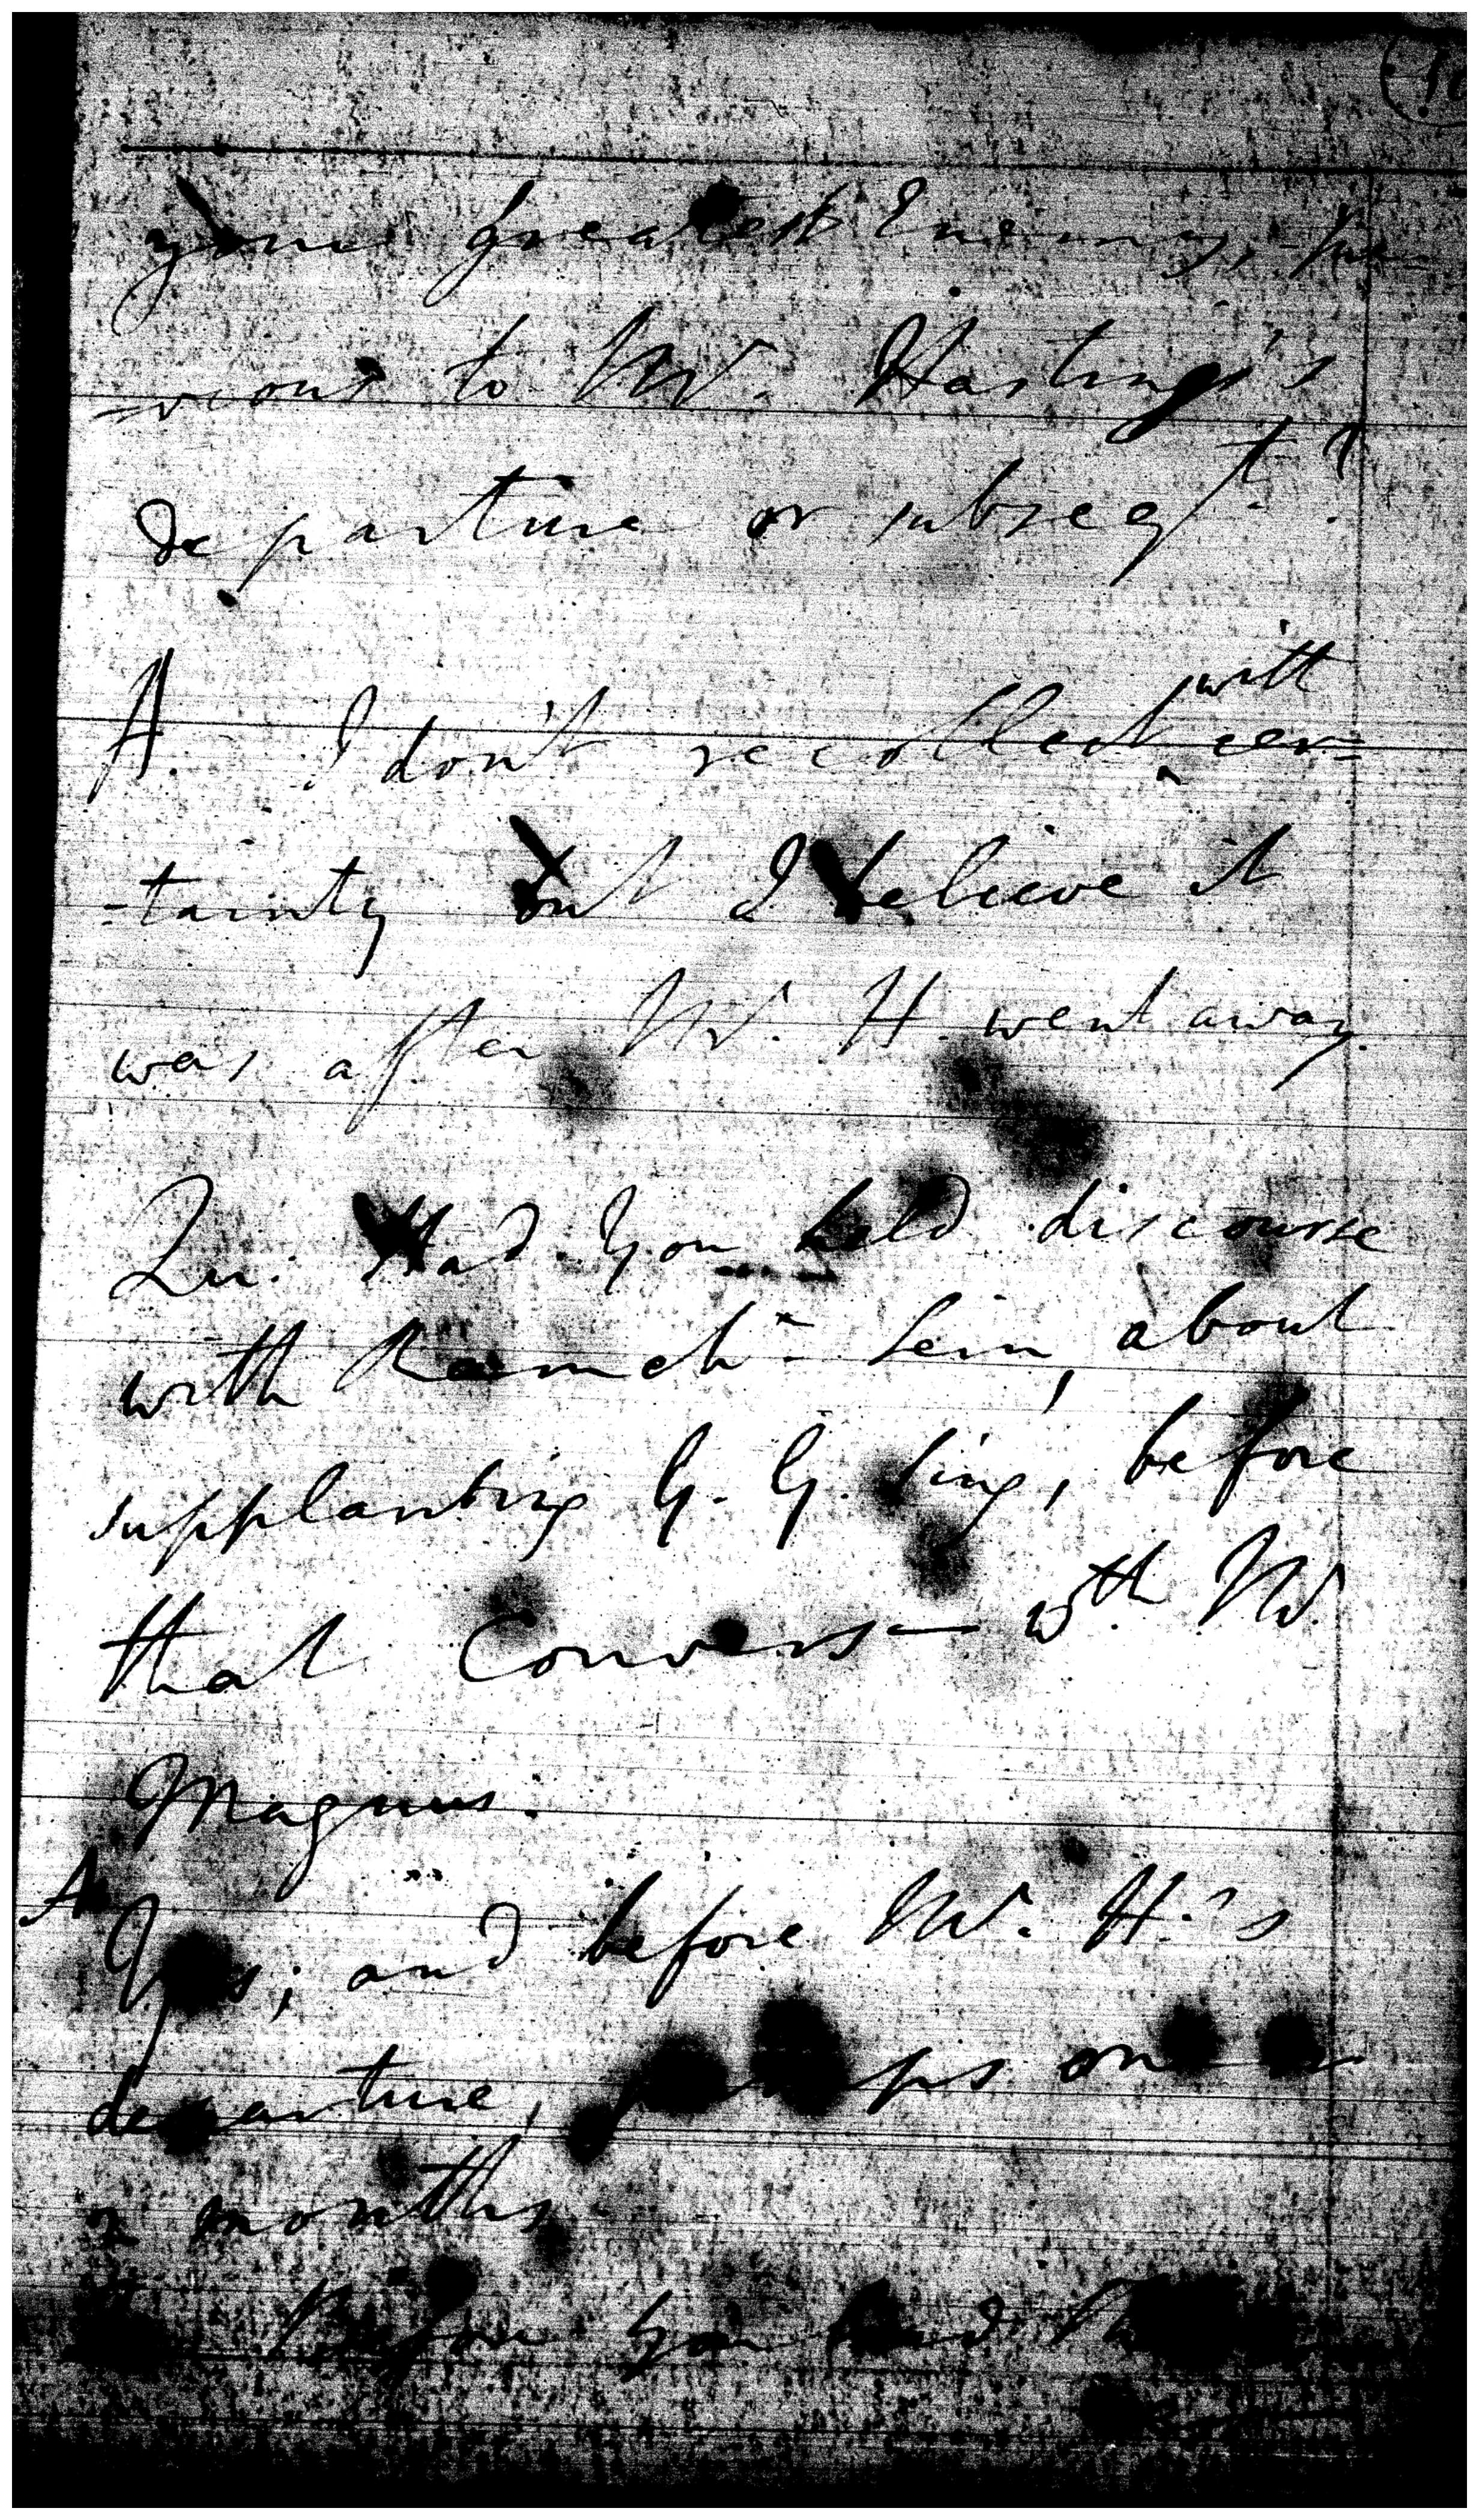 your greatest Enemy, pre-
-vious to Mr. Hastings's
departure or subseqt.?
A. I don't recollect with cer=
-tainty but I believe it
was after Mr. H. went away.
Qu. Had you held discourse
with Ramchn. Sein, about
supplanting G. G. Sing, before
that Convers— wth Mr.
Magnus.
A. Yes; and before Mr. H.'s
departure, perhaps one or
2 months
Before you had